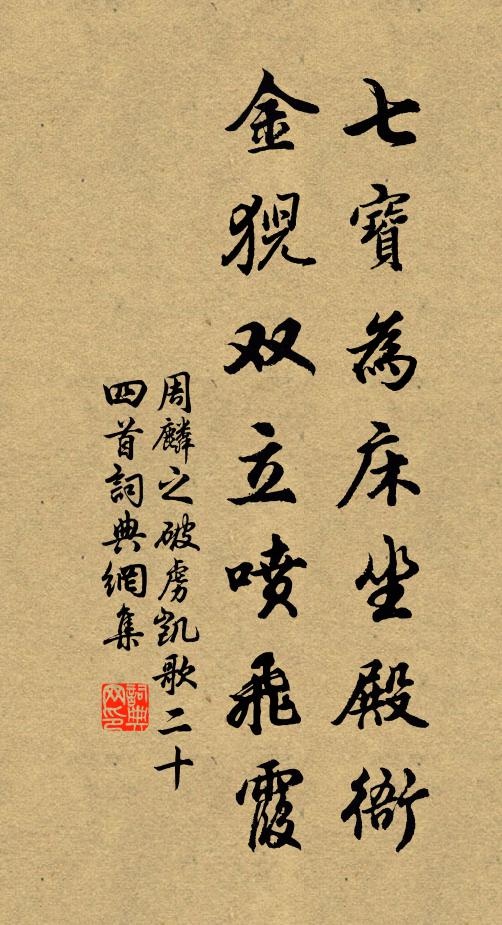 七寶為床坐殿衙
金猊双立噴飛霞
周麟之破虜凱歌二十
四首詞典網集
詞典网印